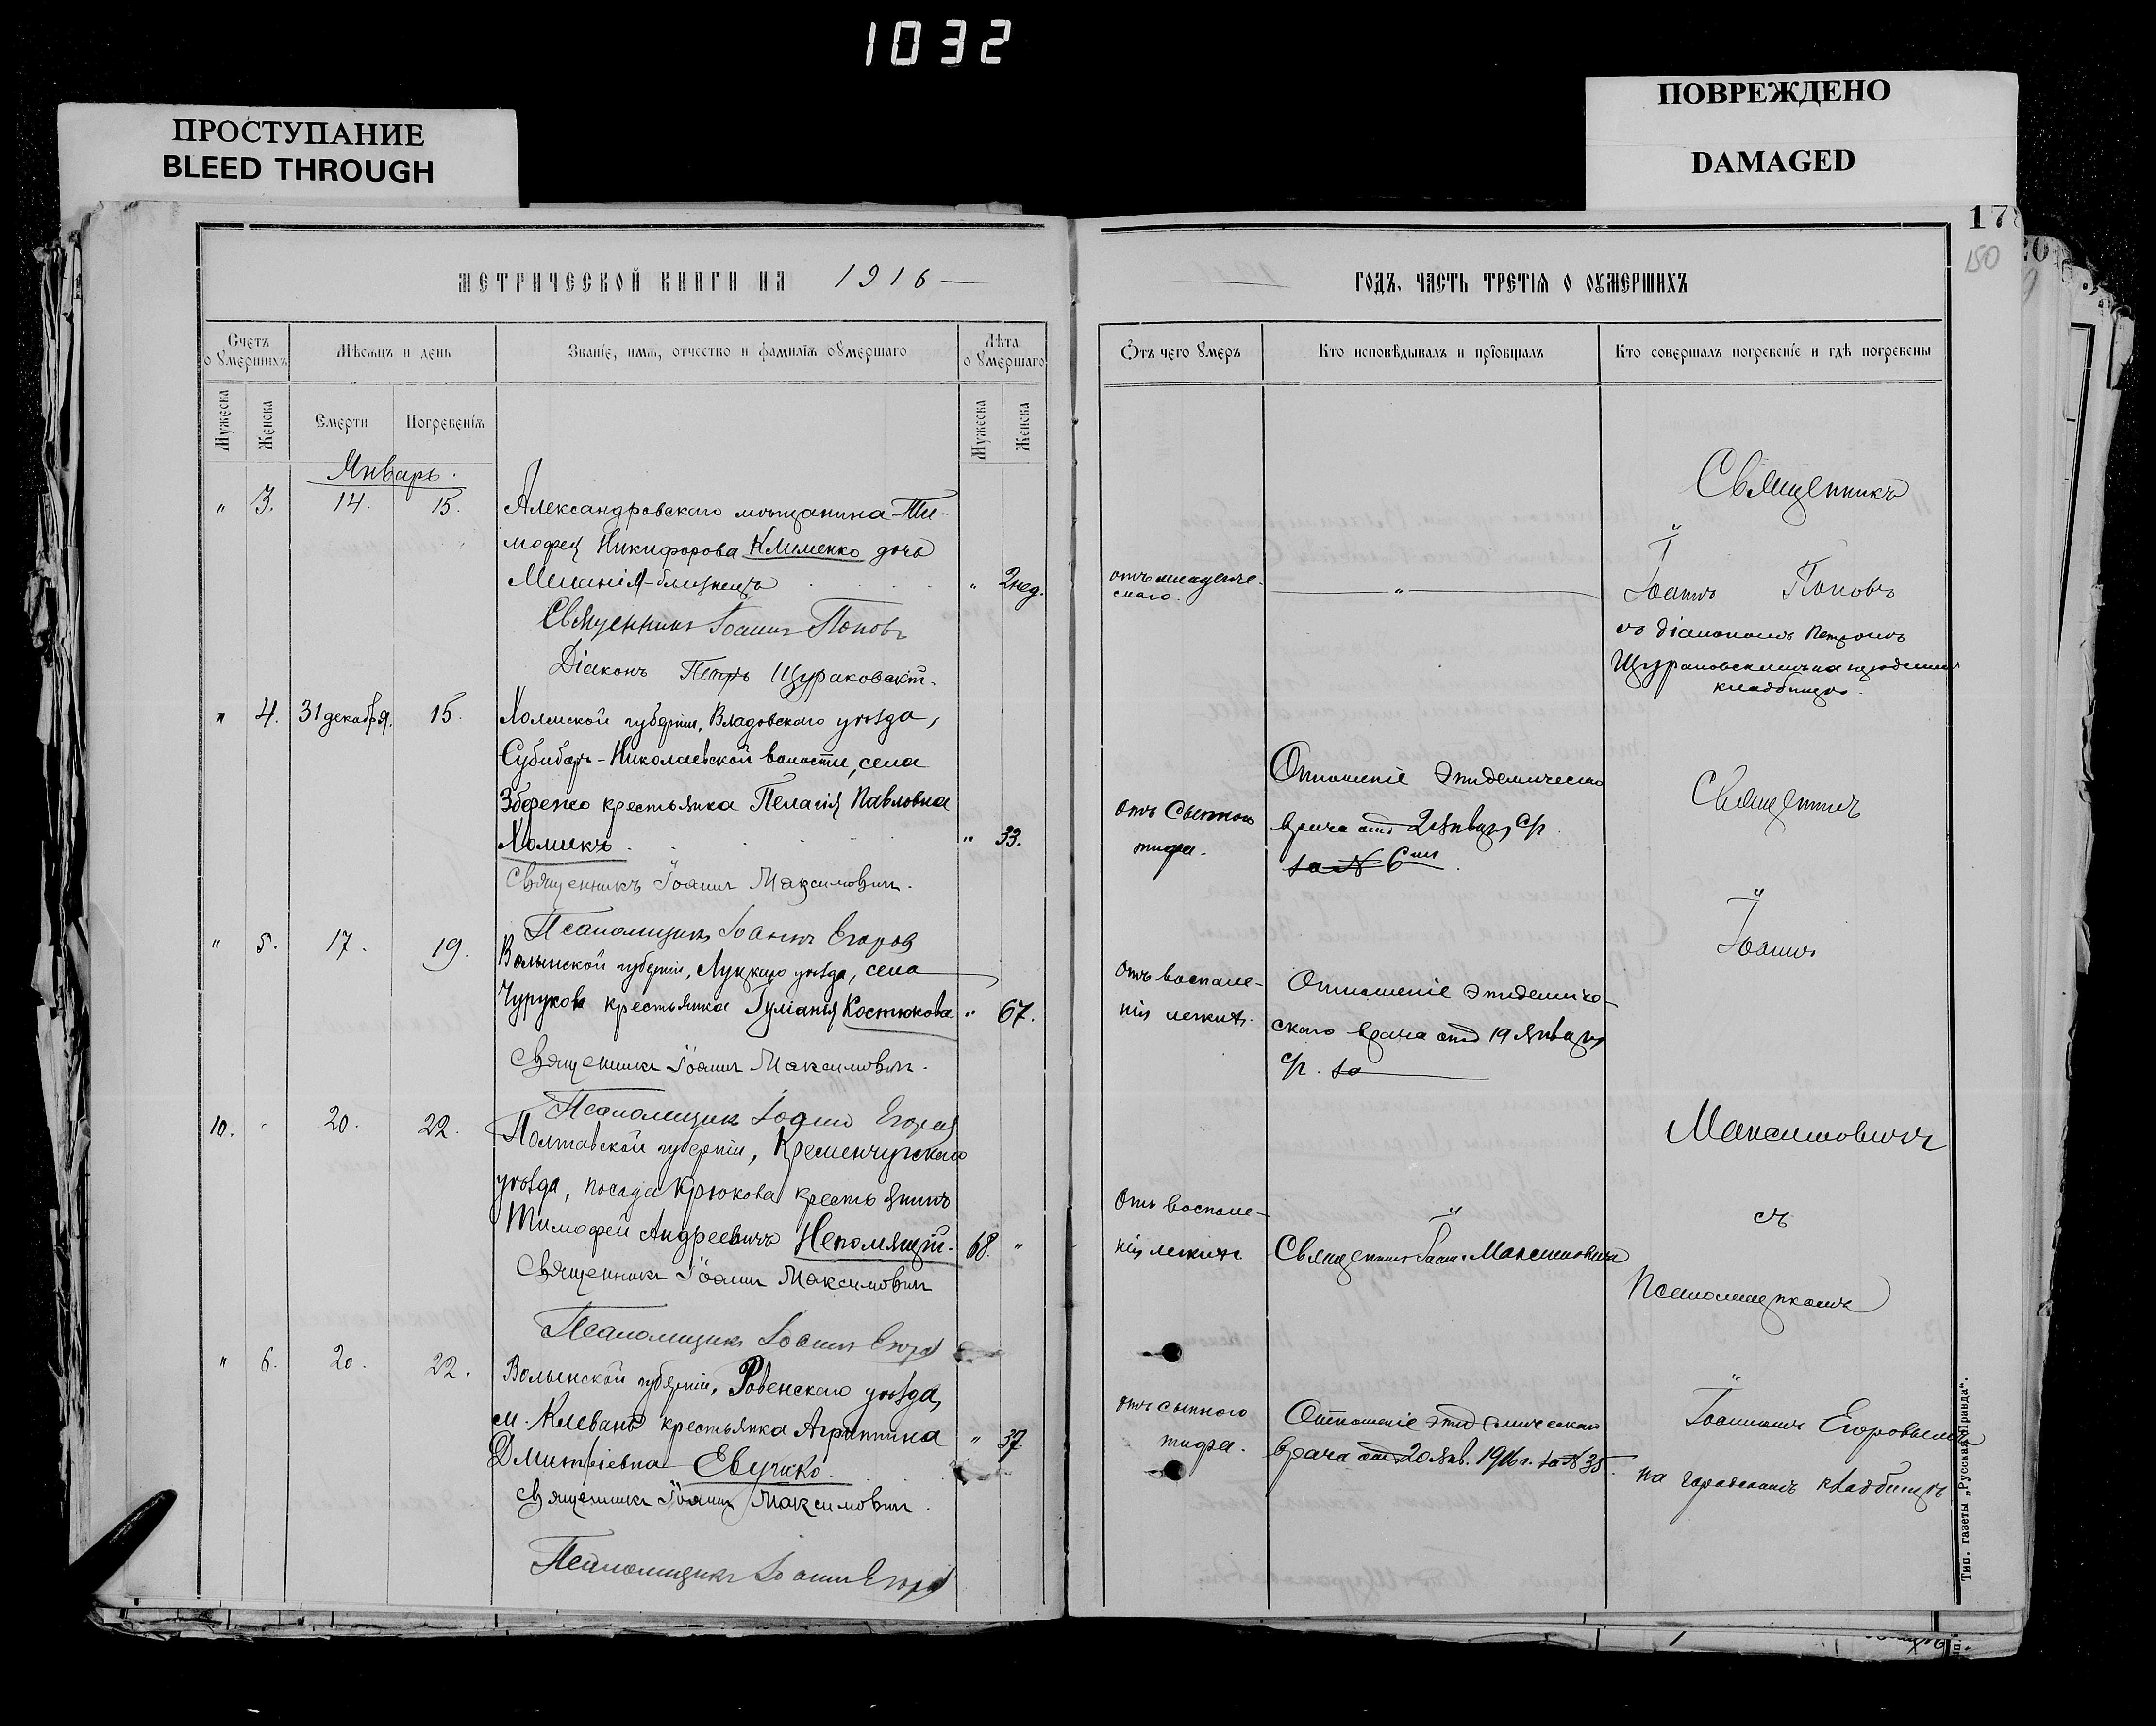 1032
ПРОСТУПАНИЕ
BLEED THROUGH
ПОВРЕЖДЕНО
DAMAGED
178
150
МЕТРИЧЕСКОЙ КНИГИ НА 1916
Счетъ о умершихъ
Мѣсяцъ и день
Званіе, имя, отчество и фамилія умершаго
Лѣта о умершаго
Мужеска
Женска
Смерти
Погребенія
Мужеска
Женска
Январь.
„ 3. 14. 15.
Александровскаго мѣщанина Ти-
мофея Никифорова Клименко дочь
Меланія-близнецъ „ 2 нед.
Священникъ Іоаннъ Поповъ
Діаконъ Петръ Щураковскій.
„ 4. 31 декабря. 15.
Холмской губерніи, Владовскаго уѣзда,
Субибарь-Николаевской волости, села
Збережо крестьянка Пелагія Павловна
Хомикъ. „ 33.
Священникъ Іоаннъ Максимовичъ.
Псаломщикъ Іоаннъ Егоров
„ 5. 17. 19.
Волынской губерніи, Луцкаго уѣзда, села
Чурукова крестьянка Гуліанія Костюкова „ 67.
Священникъ Іоаннъ Максимовичъ.
Псаломщикъ Іоаннъ Егоров
10. „ 20. 22.
Полтавской губерніи, Кременчугскаго
уѣзда, посада Крюкова крестьянинъ
Тимофей Андреевичъ Непомящій. 68. „
Священникъ Іоаннъ Максимовичъ
Псаломщикъ Іоаннъ Егоров
„ 6. 20. 22.
Волынской губерніи, Ровенскаго уѣзда,
м. Клевань крестьянка Агриппина
Дмитріевна Евучко. „ 37.
Священникъ Іоаннъ Максимовичъ.
Псаломщикъ Іоаннъ Егоров
ГОДЪ, ЧАСТЬ ТРЕТІЯ О ОУМЕРШИХЪ
Отъ чего умеръ
Кто исповѣдывалъ и пріобщалъ
Кто совершалъ погребеніе и гдѣ погребены
отъ младенче-
скаго. „
Священникъ
Іоаннъ Поповъ
съ діакономъ Петромъ
Щураковскимъ на
кладбищѣ.
отъ сыпного
тифа.
Отношеніе эпидемическаго
врача отъ 2 января с/г.
за № 6
отъ воспале-
нія легкихъ.
Отношеніе эпидемиче-
скаго врача отъ 19 января
с/г. за
Отъ воспале-
нія легкихъ.
Священникъ Іоаннъ Максимовичъ
отъ сыпного
тифа.
Отношеніе эпидемическаго
врача отъ 20 янв. 1916 г. за № 35.
Священникъ
Іоаннъ
Максимовичъ
съ
Псаломщикомъ
Іоанномъ Егоровымъ
на городскомъ кладбищѣ
Тип. газеты „Русская Правда“.